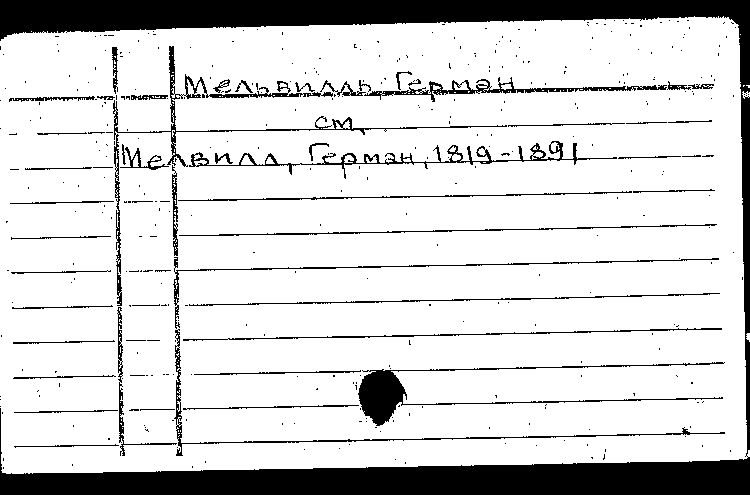 Мельвилль, Герман
см.
Мелвилл, Герман, 1819-1891